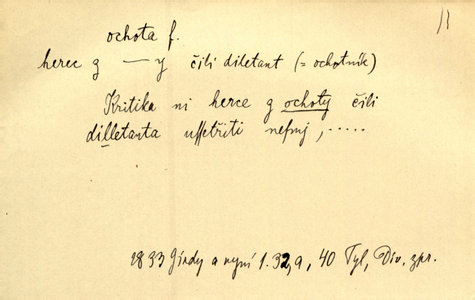 ochota f.
herec z — y čili diletant (= ochotník)
Kritika ni herce z ochoty čili
dilletanta ušetřiti nesmí, .....
1833 Jindy a nyní 1. 32, a, 40 Tyl, Div. zpr.